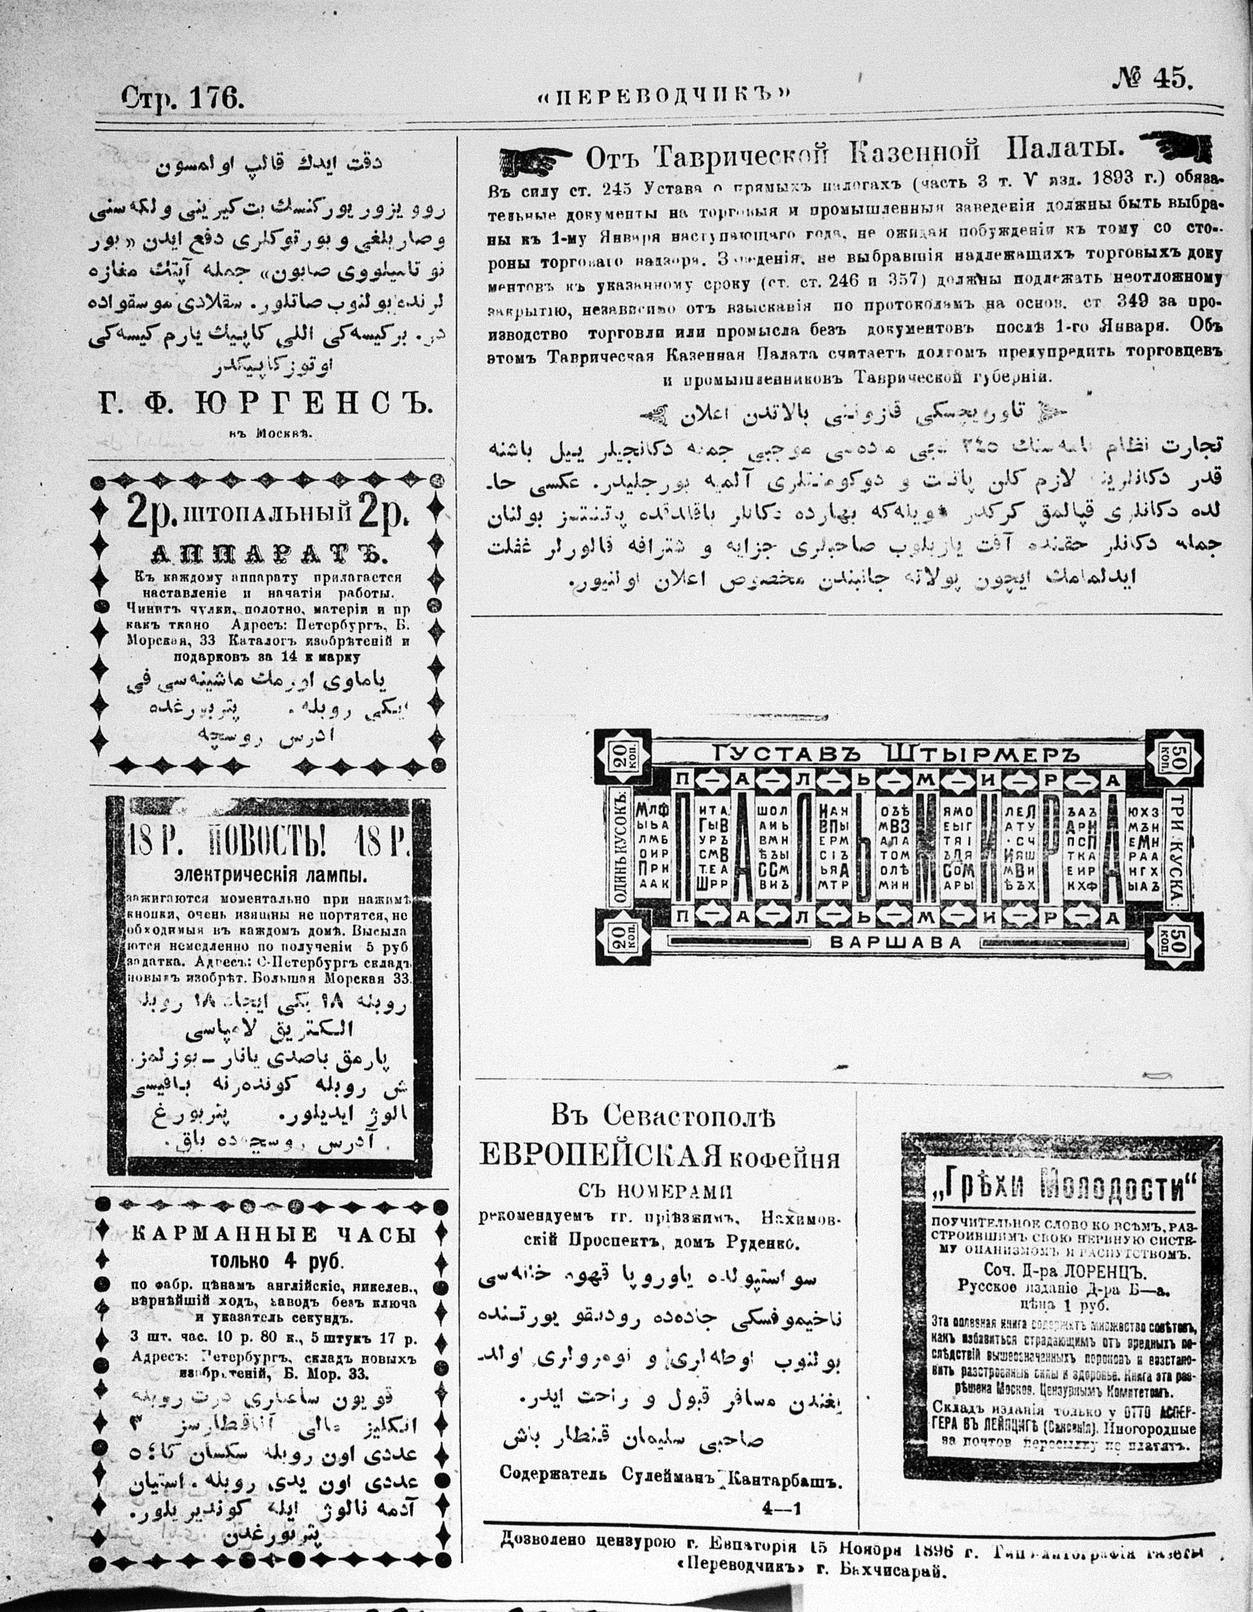 Стр. 176.
«ПЕРЕВОДЧИКЪ»
№ 45.
دقت ايدك قالپ اولمسون
روو يزور يورگنسك بت كيريني و لكه سنی
وصاريلغی و بورتوكلری دفع ايدن «بور
نو تاميلووی صابون» جمله آپتك مغازه
لرنده بولنوب صاتلور. سقلادی موسقواده
در. بركيسه كی اللی كاپيك يارم كيسه كی
اوتوز كاپيكدر
Г. Ф. ЮРГЕНСЪ.
въ Москвѣ.
2р. ШТОПАЛЬНЫЙ 2р.
АППАРАТЪ.
Къ каждому аппарату прилагается
наставленіе и начатія работы.
Чинитъ чулки, полотно, матеріи и пр
какъ ткано Адресъ: Петербургъ, Б.
Морская, 33 Каталогъ изобрѣтеній и
подарковъ за 14 к марку
ياماوی اورمك ماشينه سی فی
ايكی روبله. پتربورغده
ادرس روسچه
18 Р. НОВОСТЬ! 18 Р.
электрическія лампы.
зажигаются моментально при нажимѣ
кнопки, очень изящны не портятся, не
обходимыя въ каждомъ домѣ. Высыла
ются немедленно по полученіи 5 руб
задатка. Адресъ: С-Петербургъ складъ
новыхъ изобрѣт. Большая Морская 33.
روبله ١٨ يكی ايجاد ١٨ روبله
الكتريق لامپاسی
پارمق باصدی يانار ــ بوزلمز.
ش روبله كوندرنه باقيسی
نالوژ ايديلور. پتربورغ
آدرس روسچه ده باق.
КАРМАННЫЕ ЧАСЫ
только 4 руб.
по фабр. цѣнамъ англійскіе, никелев.,
вѣрнѣйшій ходъ, заводъ безъ ключа
и указатель секундъ.
3 шт. час. 10 р. 80 к., 5 штукъ 17 р.
Адресъ: Петербургъ, складъ новыхъ
изобрѣтеній, Б. Мор. 33.
قويون ساعتاری درت روبله
انكليز مالی آناقطارسز ٣
عددی اون روبله سكسان كا؛ ٥
عددی اون يدی روبله. استيان
آدمه نالوژ ايله كوندير يلور.
پتربورغدن
Отъ Таврической Казенной Палаты.
Въ силу ст. 245 Устава о прямыхъ налогахъ (часть 3 т. V изд. 1893 г.) обяза-
тельные документы на торговыя и промышленныя заведенія должны быть выбра-
ны къ 1-му Января наступающаго года, не ожидая побужденія къ тому со сто-
роны торговаго надзора. Заведенія, не выбравшія надлежащихъ торговыхъ доку
ментовъ къ указанному сроку (ст. ст. 246 и 357) должны подлежать неотложному
закрытію, независимо отъ взысканія по протоколамъ на основ. ст 349 за про-
изводство торговли или промысла безъ документовъ послѣ 1-го Января. Объ
этомъ Таврическая Казенная Палата считаетъ долгомъ предупредить торговцевъ
и промышленниковъ Таврической губерніи.
تاوريچسكی قازوننی پالاتدن اعلان
تجارت نظام نامه سنك ٢٤٥ نجی ماده سی موجبی جمله دكانجيلر ييل باشنه
قدر دكانلرينه لازم كلن پاتنت و دوكومنتلری آلميه بورجليدر. عكسی حا-
لده دكانلری قپالمق كركدر شويله كه بهارده دكانلر باقلدقده پتنتسز بولنان
جمله دكانلر حقنده آقت يازيلوب صاحبلری جزايه و شترافه قالورلر غفلت
ايدلمامك ايچون پولاته جانبندن مخصوص اعلان اولنيور.
ГУСТАВЪ ШТЫРМЕРЪ
20 коп.
50 коп.
ПАЛЬМИРА
ОДИНЪ КУСОКЪ:
ПАЛЬМИРА
ТРИ КУСКА:
ПАЛЬМИРА
20 коп.
50 коп.
ВАРШАВА
Въ Севастополѣ
ЕВРОПЕЙСКАЯ кофейня
СЪ НОМЕРАМИ
рекомендуемъ гг. пріѣзжимъ. Нахимов-
скій Проспектъ, домъ Руденко.
سواستپولده ياوروپا قهوه خانه سی
ناخيموفسكی جاده ده رودنقو يورتنده
بولنوب اوطه لری و نومرولری اولد
يغندن مسافر قبول و راحت ايدر.
صاحبی سليمان قنطار باش
Содержатель Сулейманъ Кантарбашъ.
4—1
„Грѣхи Молодости“
ПОУЧИТЕЛЬНОЕ СЛОВО КО ВСѢМЪ, РАЗ-
СТРОИВШИМЪ СВОЮ НЕРВНУЮ СИСТЕ-
МУ ОНАНИЗМОМЪ И РАСПУТСТВОМЪ.
Соч. Д-ра ЛОРЕНЦЪ.
Русское изданіе Д-ра Б—а.
цѣна 1 руб.
Эта полезная книга содержитъ множество совѣтовъ,
какъ избавиться страдающимъ отъ вредныхъ по-
слѣдствій вышеозначенныхъ пороковъ и возстано-
вить разстроенныя силы и здоровье. Книга эта раз-
рѣшена Москов. Цензурнымъ Комитетомъ.
Складъ изданія только у ОТТО АСПЕР-
ГЕРА ВЪ ЛЕЙПЦИГѢ (Саксенія). Иногородные
за почтов. пересылку не платятъ.
Дозволено цензурою г. Евпаторія 15 Ноября 1896 г. Типо-литографія газеты
«Переводчикъ» г. Бахчисарай.